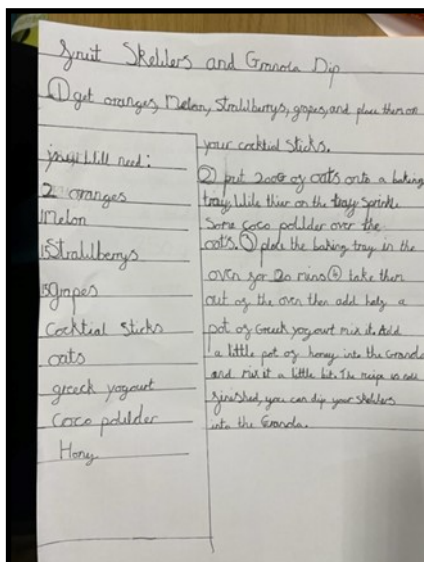 Fruit Skeliers and Granola Dip
① get oranges, Melon, Stralilberrys, grapes, and place them on
your cocktial Sticks.
you will need:
2 oranges
1 Melon
15 Stralilberrys
15 grapes
Cocktial Sticks
oats
greeck yogourt
Coco polilder
Hony
② put 200G of oats onto a baking
tray. While thier on the tray Sprinkle
Some coco polilder over the
oats. ③ place the baking tray in the
oven for 20 mins ④ take them
out of the oven then add half a
pot of Greek yogourt mix it. Add
a little pot of honey into the Granola
and mix it a little bit. The recipe is
finished, you can dip your Skeliers
into the Granola.